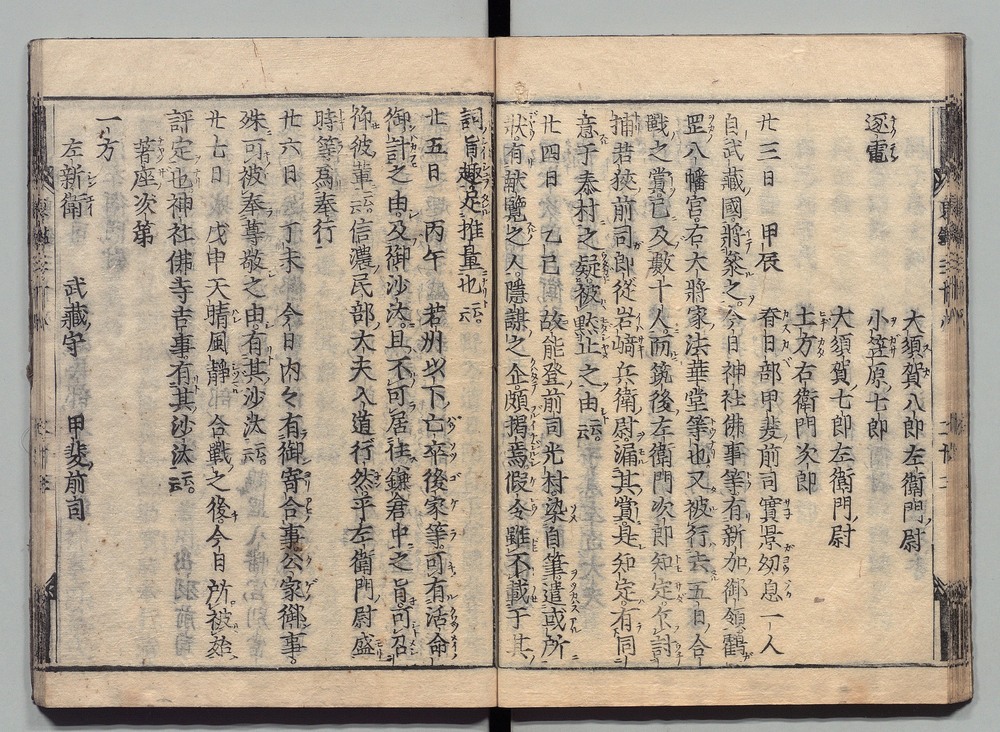 逐電
大須賀八郎左衛門尉
小笠原七郎
大須賀七郎左衛門尉
土方右衛門次郎
廿三日 甲辰 春日部甲斐前司實景幼息一人
自武藏國將參之今日神社佛事等有新加御領鶴
罡八幡宮右大將家法華堂等也又被行去五日合
戰之賞已及數十人而筑後左衛門次郎知定不討
捕若狹前司郎從岩﨑兵衛尉漏其賞是知定有同
意于泰村之疑被默止之由云云
廿四日 乙巳 故能登前司光村染自筆遣或所
狀有獻覽之人隱謀之企頗揭焉假令雖不載于其
詞旨趣足推量也云云
廿五日 丙午 若州以下亡卒後家等可有活命
御計之由及御沙汰且不可居住鎌倉中之旨可召
仰彼輩云云信濃民部大夫入道行然平左衛門尉盛
時等為奉行
廿六日 丁未 今日内々有御寄合事公家御事
殊可被奉尊敬之由有其沙汰云云
廿七日 戊申天晴風靜 合戰之後今日所被始
評定也神社佛寺吉事有其沙汰云云
著座次第
一方
左新衛 武藏守 甲斐前司